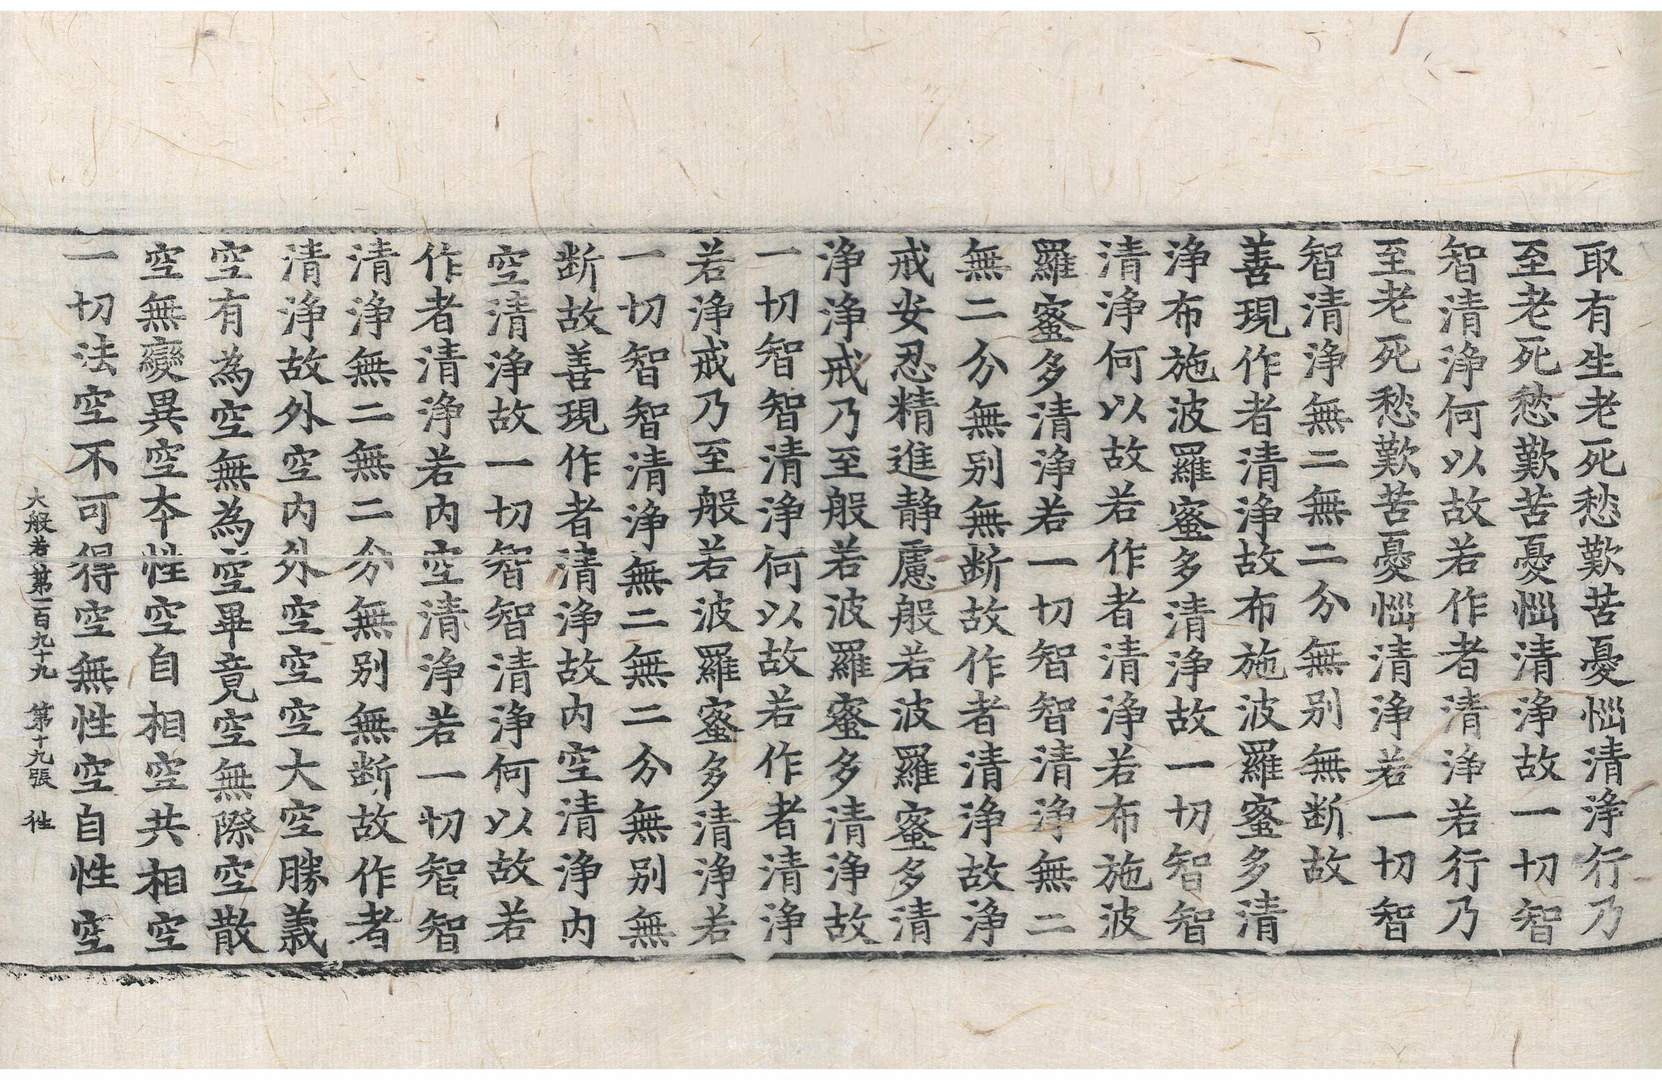 取有生老死愁歎苦憂惱清淨行乃
至老死愁歎苦憂惱清淨故一切智
智清淨何以故若作者清淨若行乃
至老死愁歎苦憂惱清淨若一切智
智清淨無二無二分無別無斷故
善現作者清淨故布施波羅蜜多清
淨布施波羅蜜多清淨故一切智智
清淨何以故若作者清淨若布施波
羅蜜多清淨若一切智智清淨無二
無二分無別無斷故作者清淨故淨
戒安忍精進靜慮般若波羅蜜多清
淨淨戒乃至般若波羅蜜多清淨故
一切智智清淨何以故若作者清淨
若淨戒乃至般若波羅蜜多清淨若
一切智智清淨無二無二分無別無
斷故善現作者清淨故內空清淨內
空清淨故一切智智清淨何以故若
作者清淨若內空清淨若一切智智
清淨無二無二分無別無斷故作者
清淨故外空內外空空空大空勝義
空有為空無為空畢竟空無際空散
空無變異空本性空自相空共相空
一切法空不可得空無性空自性空
大般若第一百九十九 第十九張